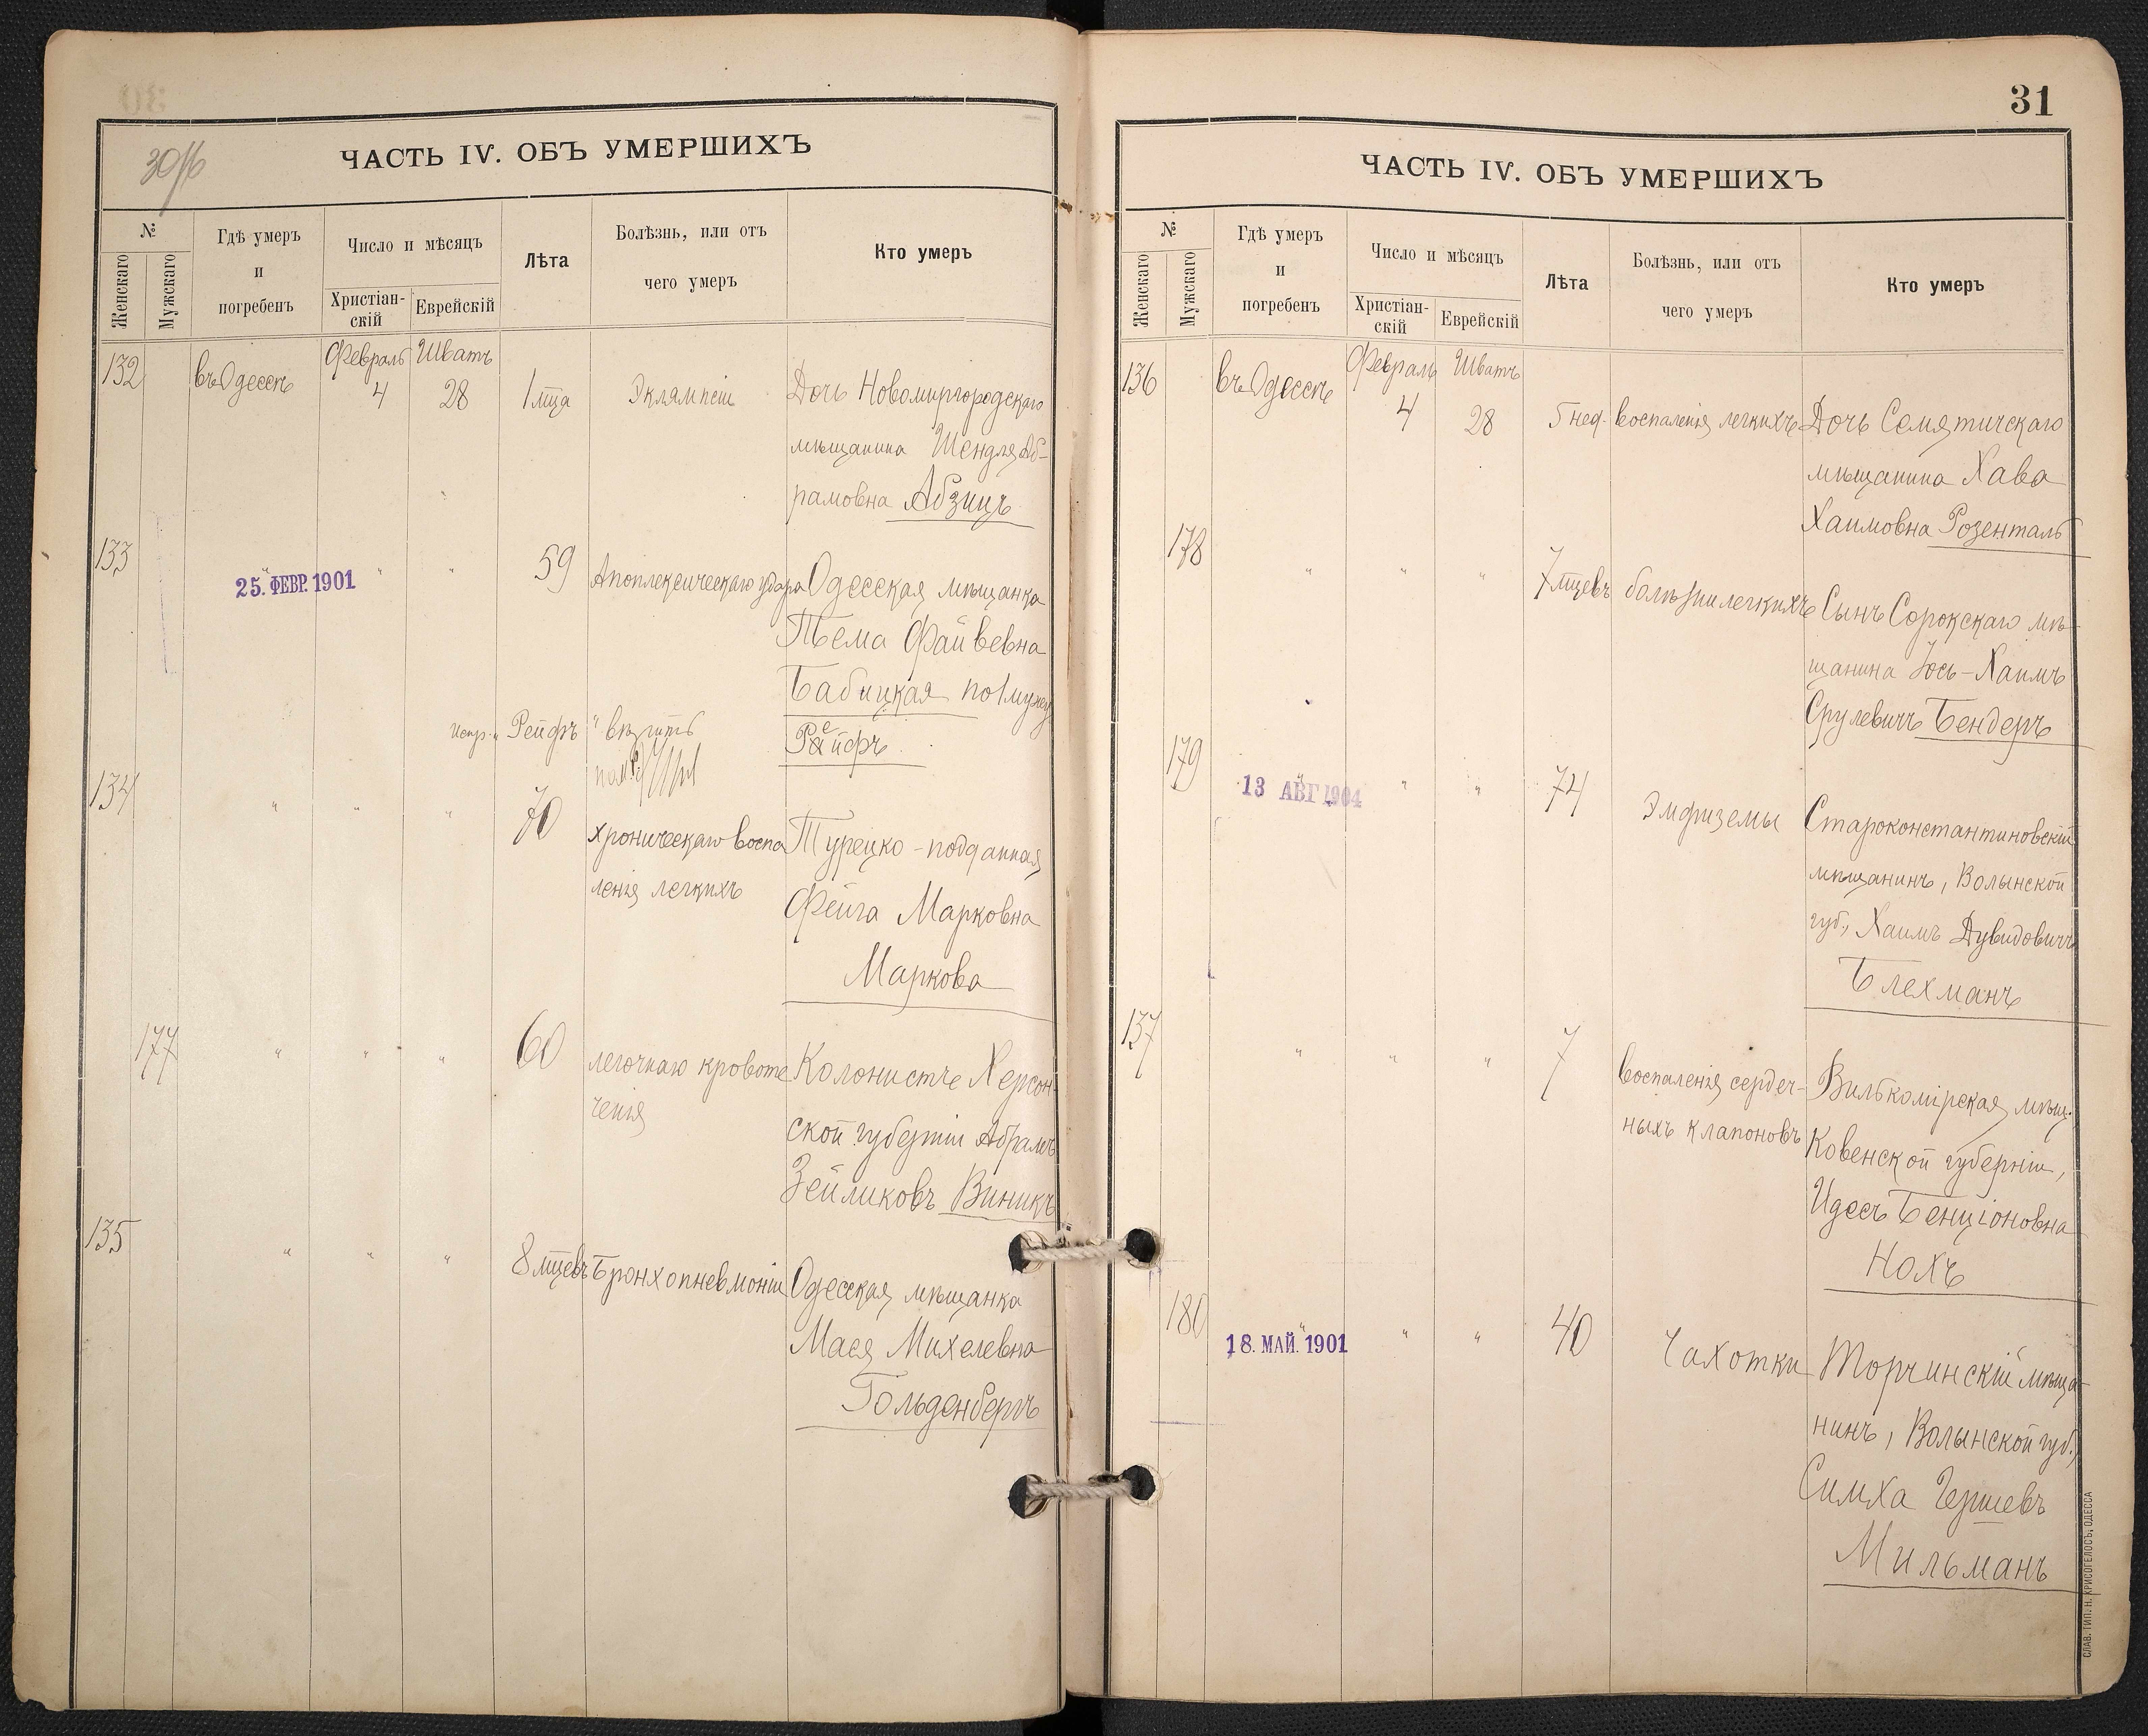 30 об
ЧАСТЬ IV. ОБЪ УМЕРШИХЪ
№
Женскаго
Мужскаго
Гдѣ умеръ
и
погребенъ
Число и мѣсяцъ
Христіан-
скій
Еврейскій
Лѣта
Болѣзнь, или отъ
чего умеръ
Кто умеръ
132
въ Одессѣ
Февраль
4
Шватъ
28
1 мца
Эклямпсіи
Дочь Новомиргородскаго
мѣщанина Шендля Аб-
рамовна Абзицъ
133
" " "
25. ФЕВР. 1901
59
Апоплексическаго удара
Одесская мѣщанка
Тема Файвевна
Бабицкая по мужу
Рейфъ
испр. " Рейфъ "
134
" " "
70
хроническаго воспа
ленія легкихъ
Турецко-подданная
Фейга Марковна
Маркова
177
" " "
60
легочнаго кровоте
ченія
Колонистъ Херсон-
ской губерніи Абрамъ
Зейликовъ Виникъ
135
" " "
8 мцевъ
Бронхопневмоніи
Одесская мѣщанка
Мася Михелевна
Гольденбергъ
31
ЧАСТЬ IV. ОБЪ УМЕРШИХЪ
№
Женскаго
Мужскаго
Гдѣ умеръ
и
погребенъ
Число и мѣсяцъ
Христіан-
скій
Еврейскій
Лѣта
Болѣзнь, или отъ
чего умеръ
Кто умеръ
136
въ Одессѣ
Февраль
4
Шватъ
28
5 нед.
воспаленія легкихъ
Дочь Семятичскаго
мѣщанина Хава
Хаимовна Розенталь
178
" " "
7 мцевъ
болѣзни легкихъ
Сынъ Сорокскаго мѣ-
щанина Іось-Хаимъ
Срулевичъ Бендеръ
179
" " "
13 АВГ 1904
74
Эмфиземы
Староконстантиновскій
мѣщанинъ, Волынской
губ., Хаимъ Дувидовичъ
Блехманъ
137
" " "
7
воспаленія сердеч-
ныхъ клапоновъ
Вилькомірская мѣщ.
Ковенской губерніи,
Идесъ Бенціоновна
Нохъ
180
" " "
18. МАЙ. 1901
40
Чахотки
Торчинскій мѣща-
нинъ, Волынской губ.,
Симха Гершевъ
Мильманъ
СЛАВ. ТИП. Н. ХРИСОГЕЛОСЪ, ОДЕССА